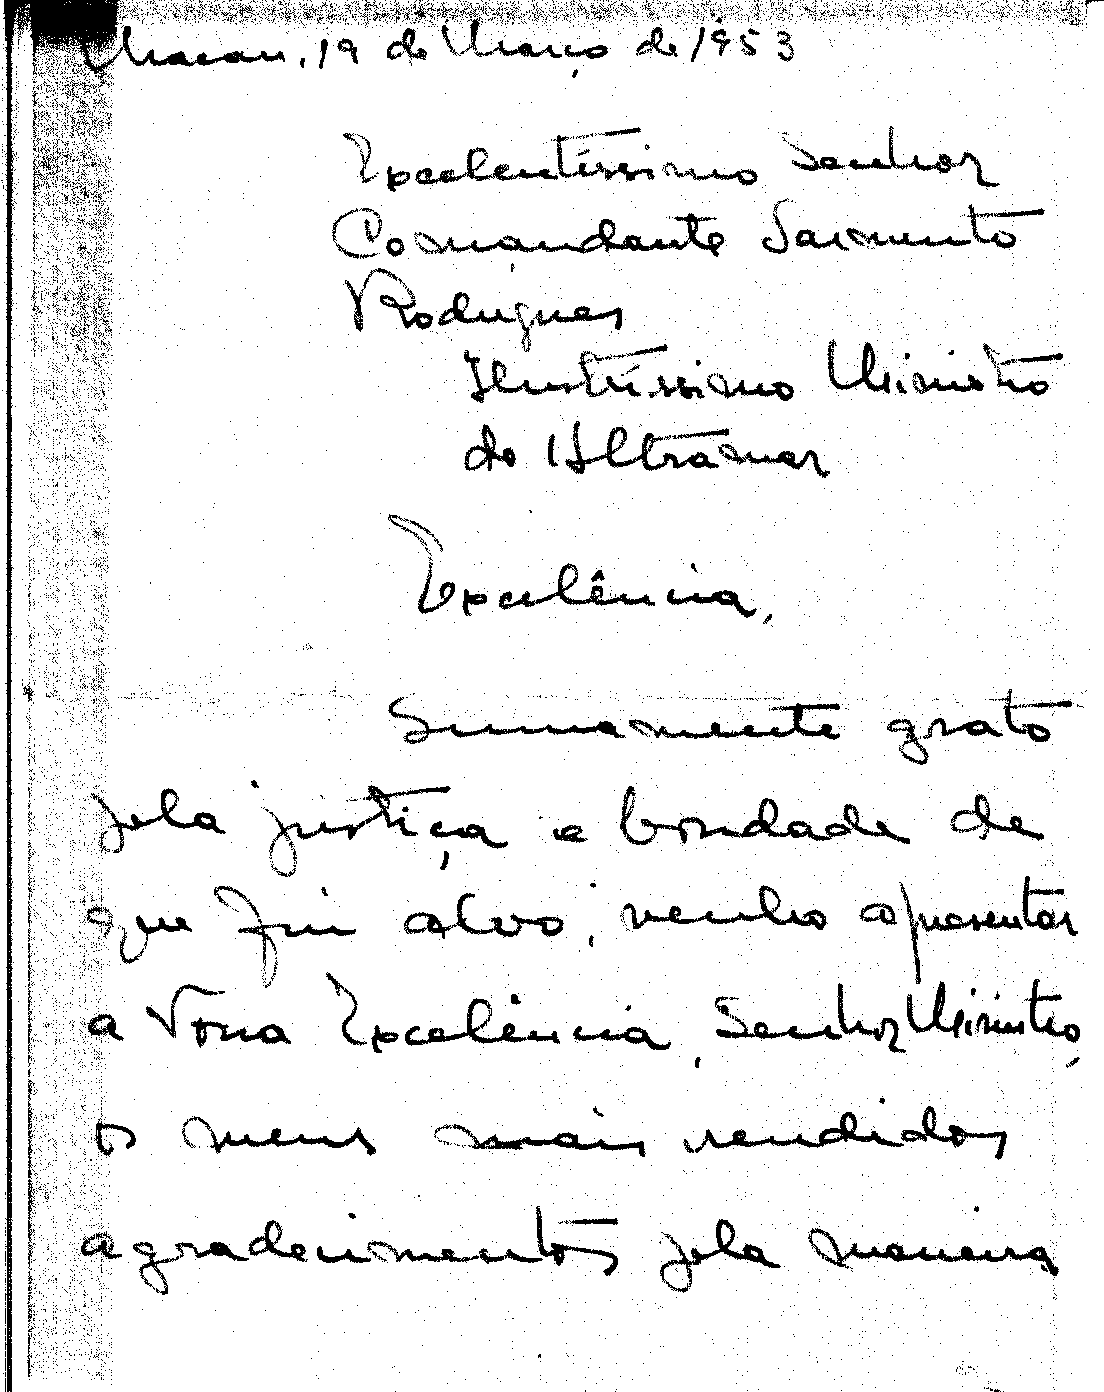 Macau, 19 de Março de 1953
Excelentíssimo Senhor
Comandante Sarmento
Rodrigues
Ilustríssimo Ministro
do Ultramar
Excelência,
Sumamente grato
pela justiça e bondade de
que fui alvo, venho apresentar
a Vossa Excelência, Senhor Ministro,
os meus mais rendidos
agradecimentos pela maneira